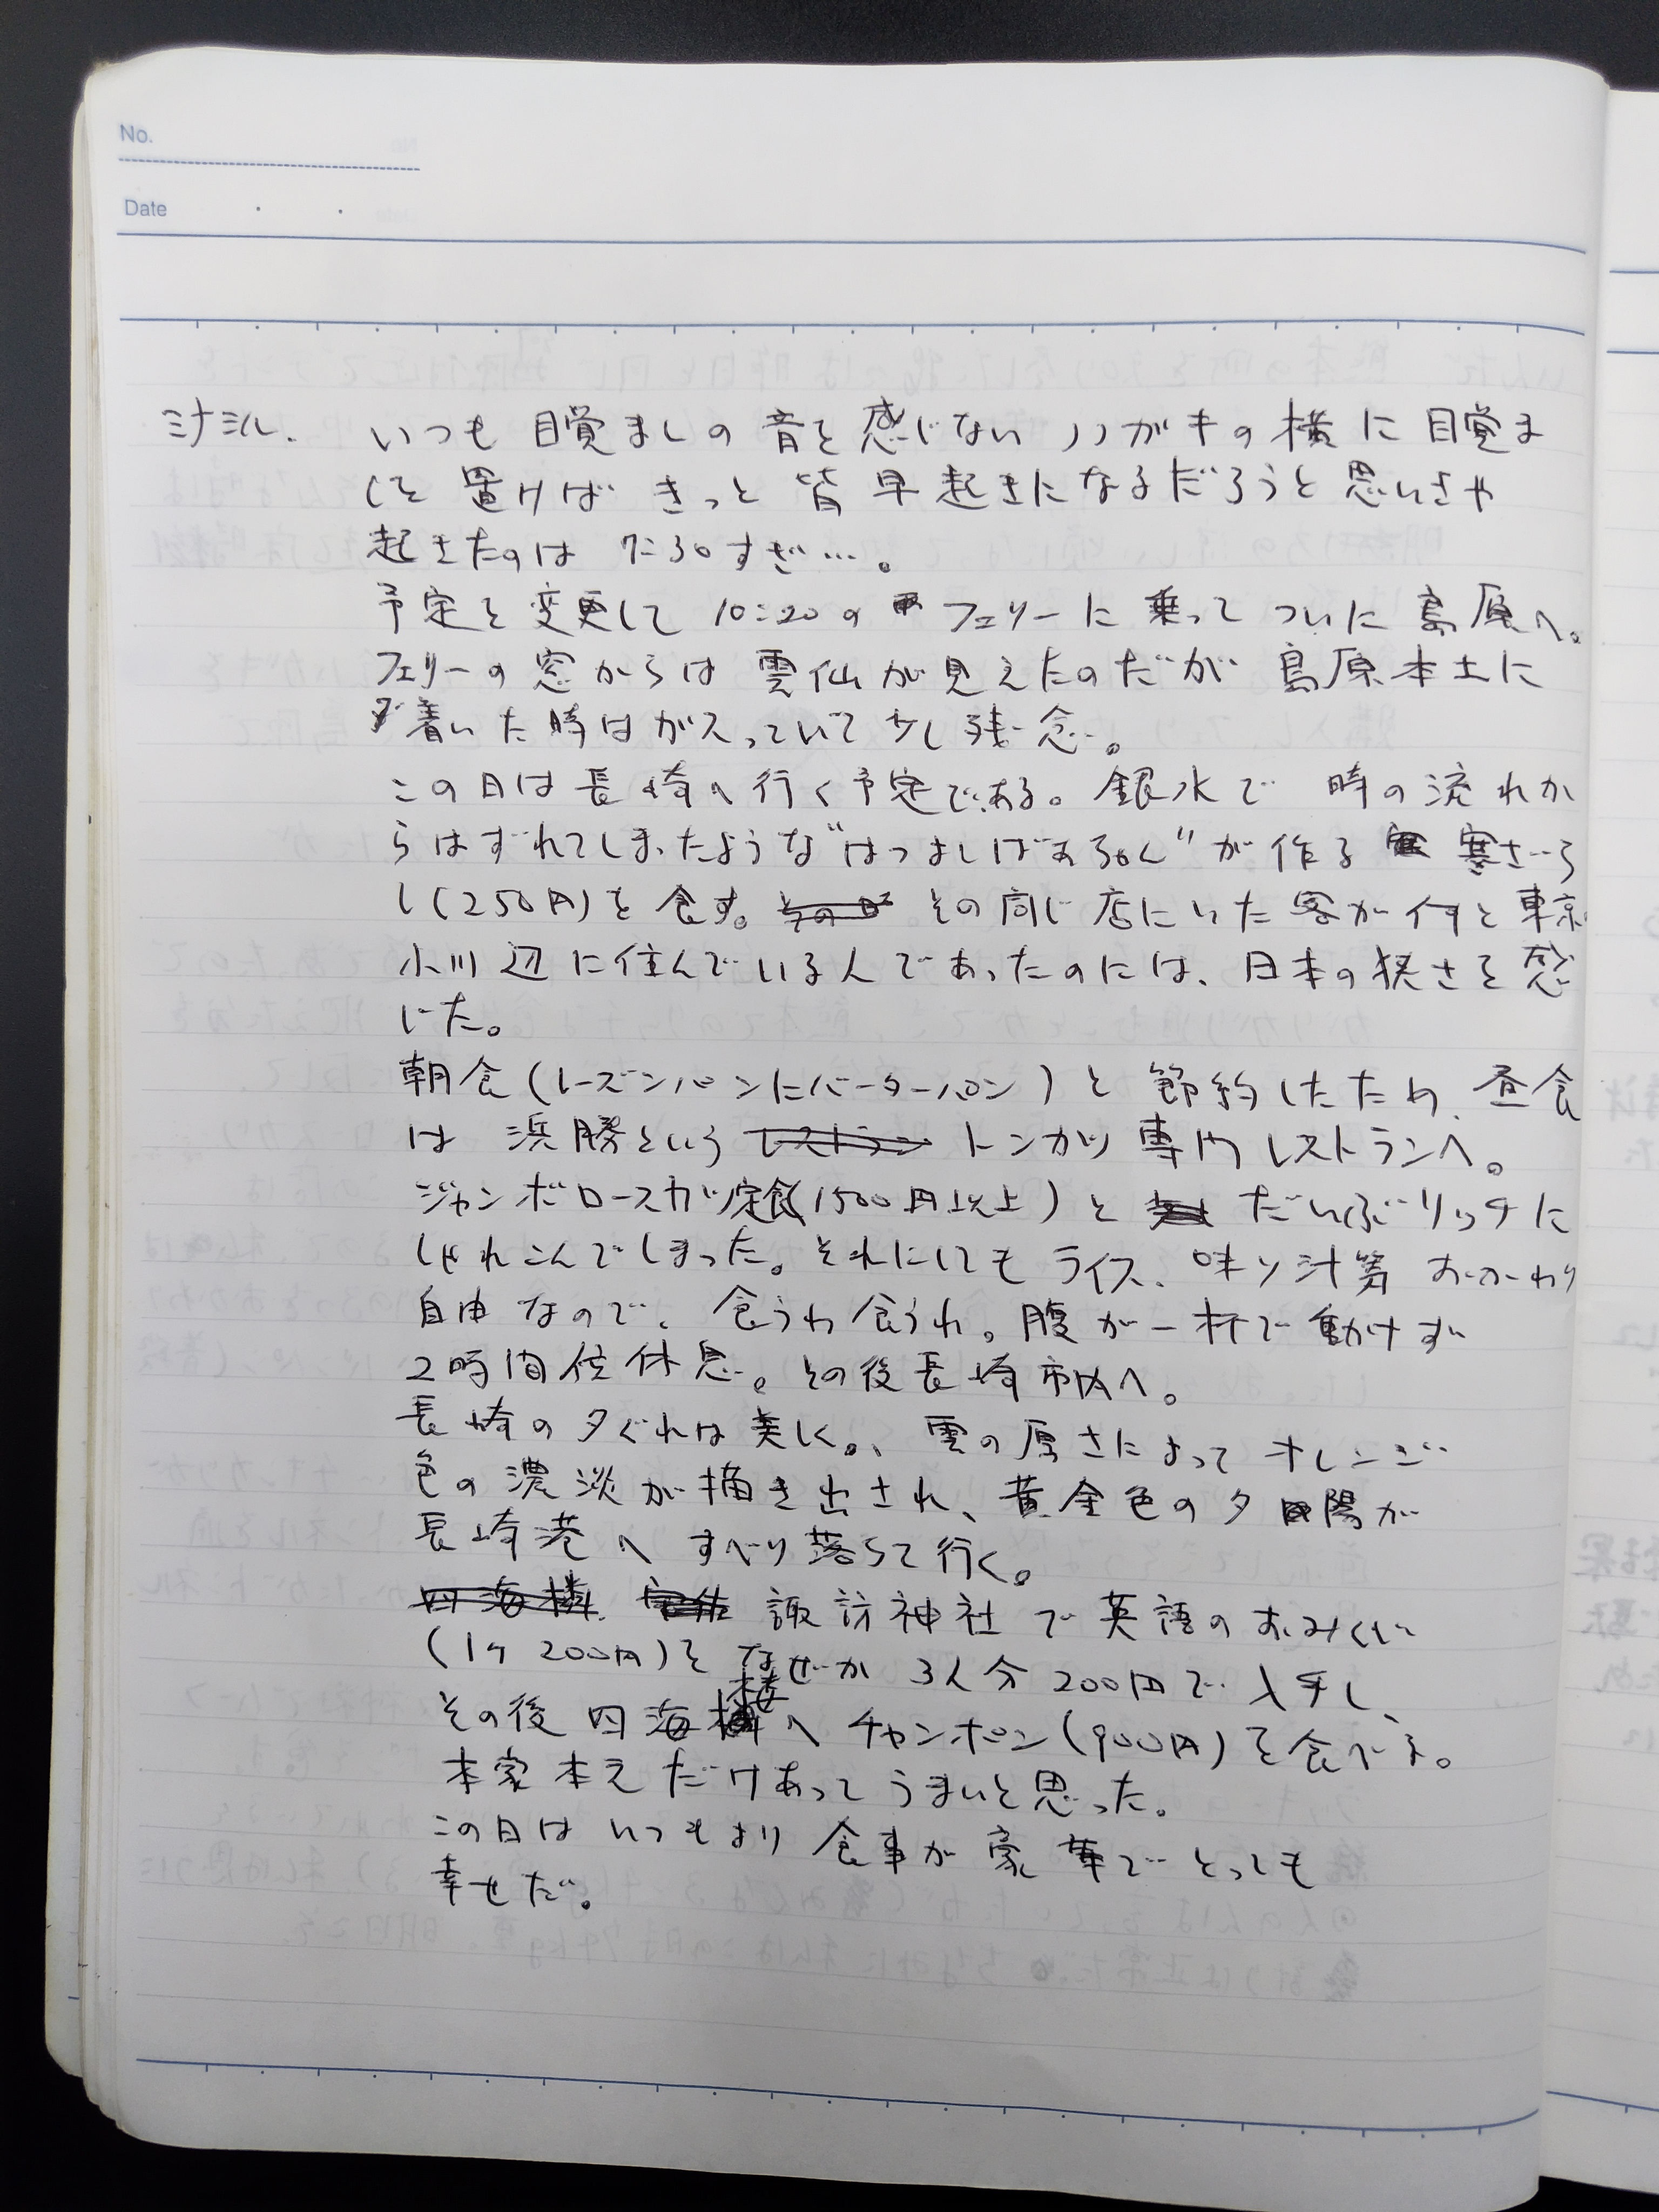 No.
Date
ミナミル. いつも目覚ましの音を感じないハガキの横に目覚ま
しを置けばきっと皆早起きになるだろうと思いきや
起きたのは 7:30すぎ…。
予定を変更して 10:20の フェリーに乗ってついに島原へ。
フェリーの窓からは雲仙が見えたのだが島原本土に
着いた時はガスっていて少し残念。
この日は長崎へ行く予定である。銀水で 時の流れか
らはずれてしまったような"はつよしばあちゃん"が作る 寒ざらし
し(250円)を食す。その同じ店にいた客が何と東京
小川辺に住んでいる人であったのには、日本の狭さを感
じた。
朝食(レーズンパンにバターパン)と節約したため、昼食
は 浜勝という レストラン トンカツ専門レストランへ。
ジャンボロースカツ定食(1500円以上)と だいぶリッチに
しゃれこんでしまった。それにしてもライス、味ソ汁等 おかわり
自由なので、食うわ食うわ。腹が一杯で動けず
2時間位休息。その後長崎市内へ。
長崎の夕ぐれは美しく。、雲の厚さによってオレンジ
色の濃淡が描き出され、黄金色の夕陽が
長崎港へすべり落ちて行く。
四海樓 諏訪神社で英語のおみくじ
(1ケ 200円)をなぜか 3人分 200円で入手し、
その後四海樓へ チャンポン(900円)を食べる。
本家本元だけあってうまいと思った。
この日はいつもより食事が豪華でとっても
幸せだ。